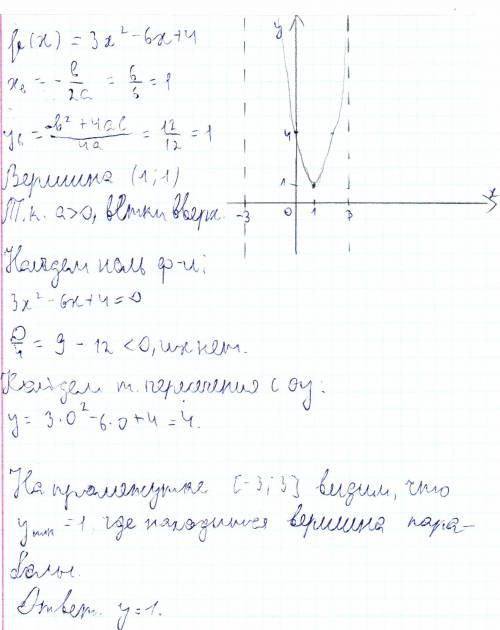 f(x) = 3x² - 6x + 4
xв = -b/2a = 6/6 = 1
yв = -b² + 4ac/4a = 12/12 = 1
Вершина (1; 1)
Т.к. a>0, ветки вверх.
Найдем ноль ф-и:
3x² - 6x + 4 = 0
D/4 = 9 - 12 < 0, их нет.
Найдем т. пересечения с оу:
y = 3·0² - 6·0 + 4 = 4.
На промежутке [-3; 3] видим, что
y min = 1, где находится вершина пара-
болы.
Ответ. y = 1.
y
4
1
-3 0 1 3 x